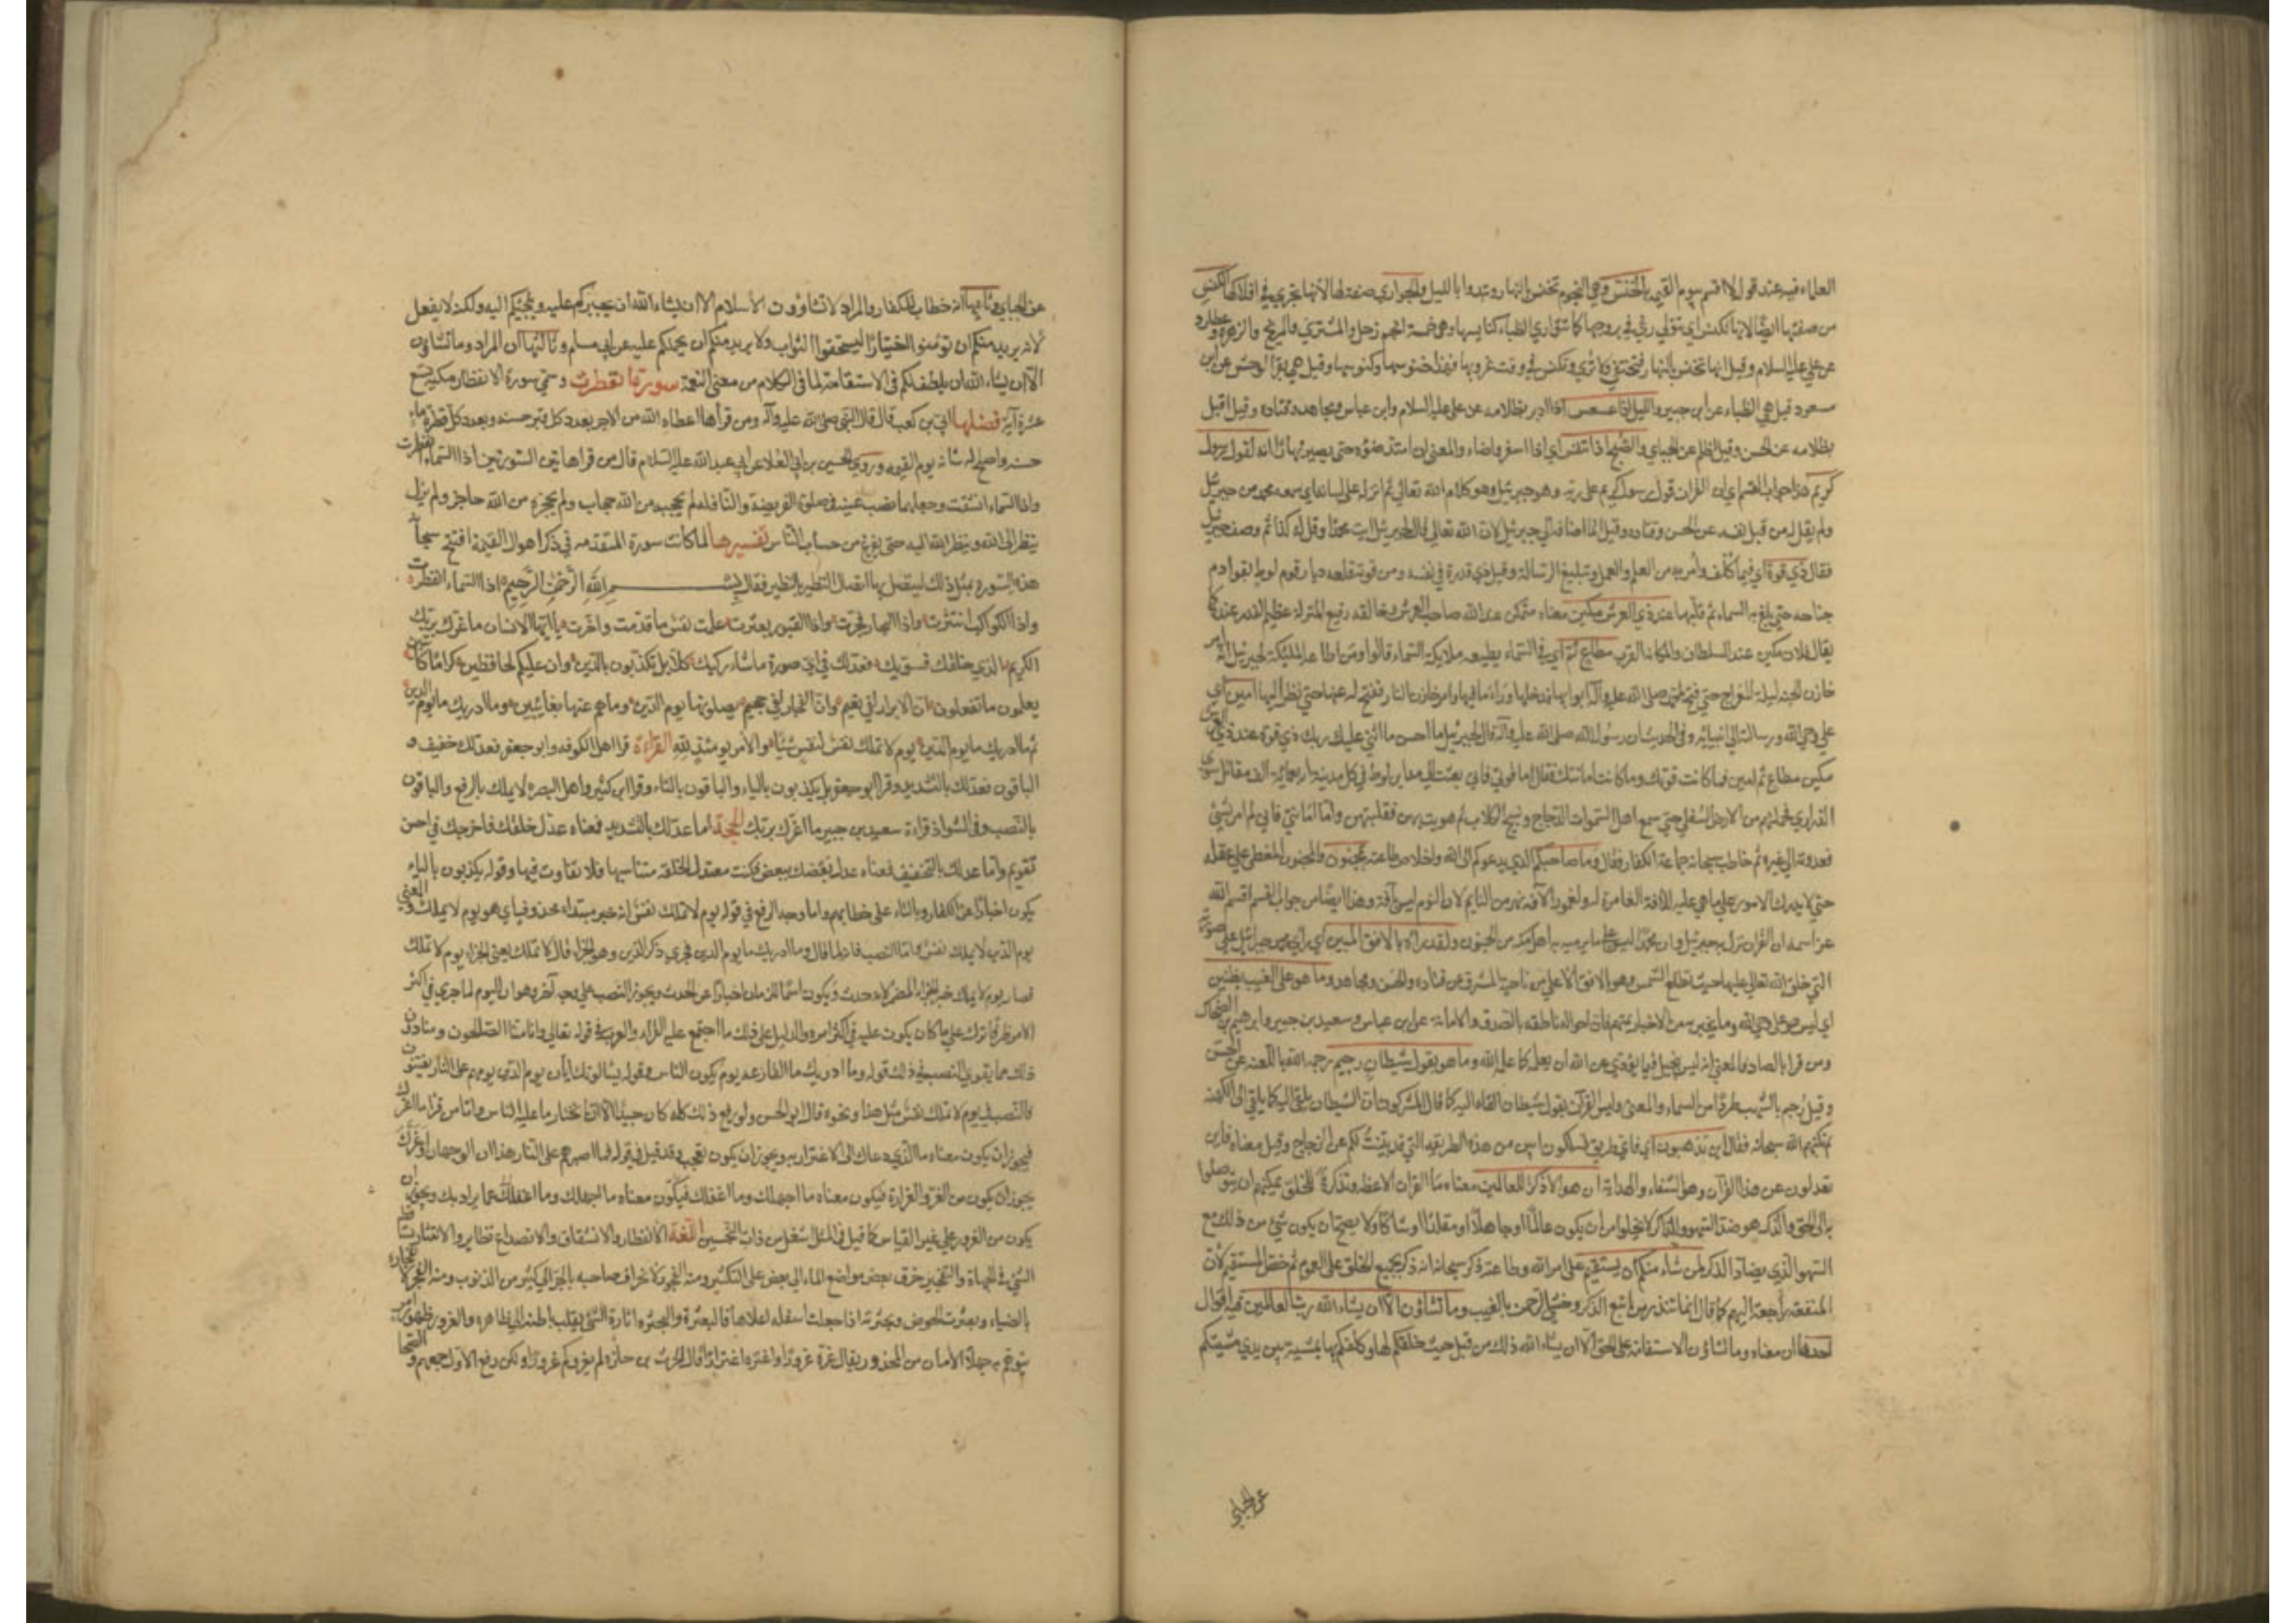 العلماء فيه عند قوله لا اقسم بيوم القيمة بالخنس وهي النجوم تخنس بالنهار وتبدوا بالليل والجواري صفة لها لانها تجري في افلاكها الكنس
من صفتها ايضا لانها تكنس اي تتواري في بروجها كما تتواري الظباء في كناسها وهي خمسة انجم زحل والمشتري والمريخ والزهرة وعطارد
عن علي عليه السلام وقيل انها تخنس بالنهار فتختفي ولا تري وتكنس في وقت غروبها فهذا خنوسها وكنوسها وقيل هي بقر الوحش عن ابن
مسعود وقيل هي الظباء عن ابن جبير والليل اذا عسعس اذا ادبر بظلامه عن علي عليه السلام وابن عباس ومجاهد وقتاده وقيل اقبل
بظلامه عن الحسن وقيل اظلم عن الجبائي والصبح اذا تنفس اي اذا اسفر واضاء والمعني ان امتد ضوءه حتى يصير نهارا انه لقول رسول
كريم هذا جواب القسم اي ان القران قول رسول كريم على ربه وهو جبرئيل وهو كلام الله تعالي انزله على لسانه اي سمعه محمد من جبرئيل
ولم يقله من قبل نفسه عن الحسن وقتاده وقيل انما اضافه الي جبرئيل لان الله تعالي قال لجبرئيل ايت محمدا وقل له كذا ثم وصف جبرئيل
فقال ذي قوة اي فيما كلف وامر به من العلم والعمل وتبليغ الرسالة وقيل ذي قدرة في نفسه ومن قوته قلعه ديار قوم لوط بقوادم
جناحه حتي بلغ بها السماء ثم قلبها عند ذي العرش مكين معناه متمكن عند الله صاحب العرش وخالقه رفيع المنزلة عظيم القدر عنده كما
يقال فلان مكين عند السلطان والمكانة القرب مطاع ثم اي في السماء يطيعه ملايكة السماء قالوا ومن اطاعة الملئكة لجبرئيل انه امر
خازن الجنة ليلة المعراج حتي فتح لمحمد صلى الله عليه وآله ابوابها فدخلها وراى ما فيها وامر خازن النار ففتح له عنها حتي نظر اليها امين اي
علي وحي الله ورسالته الي انبيائه وفي الحديث ان رسول الله صلى الله عليه وآله قال لجبرئيل ما احسن ما اثني عليك ربك ذي قوة عند ذي العرش
مكين مطاع ثم امين فما كانت قوتك وما كانت امانتك فقال اما قوتي فاني بعثت الي مداين لوط وفي كل مدينة اربعمائة الف مقاتل سوي
الذراري فحملتهم من الارض السفلي حتي سمع اهل السموات الدجاج ونباح الكلاب ثم هويت بهن فقلبتهن واما امانتي فاني لم اومر بشئ
فعدوته الي غيره ثم خاطب سبحانه جماعة الكفار فقال وما صاحبكم الذي يدعوكم الى الله واخلاص طاعته بمجنون والمجنون المغطي علي عقله
حتي لا يدرك الامور علي ما هي عليه للافة الغامرة له وبغمور الآفة يتميز من النايم لان النوم ليس آفة وهذا ايضا من جواب القسم اقسم الله
عز اسمه ان القران نزل به جبرئيل وان محمدا ليس علي ما يرميه به اهل مكة من الجنون ولقد رآه بالافق المبين اي راى محمد جبرئيل علي صورته
التي خلقه الله تعالي عليها حيث تطلع الشمس وهو الافق الاعلي من ناحية المشرق عن قتاده والحسن ومجاهد وما هو على الغيب بظنين
اي ليس هو على وحي الله وما يخبر به من الاخبار بمتهم فان احواله ناطقه بالصدق والامانة عن ابن عباس وسعيد بن جبير وابرهيم والضحاك
ومن قرا بالضاد فالمعني انه ليس ببخيل فيما يؤدي عن الله ان يعلمه كما علمه الله وما هو بقول شيطان رجيم رجمه الله باللعنة عن الحسن
وقيل رجم بالشهب طردا من السماء والمعنى وليس القرآن بقول شيطان القاه اليه كما قال المشركون ان الشيطان يلقي اليه كما يلقي الى الكهنة
بكتهم الله سبحانه فقال فاين تذهبون اي فاي طريق تسلكون ابين من هذه الطريقه التي قد بينت لكم عن الزجاج وقيل معناه فاين
تعدلون عن هذا القرآن وهو الشفاء والهداية ان هو الا ذكر للعالمين معناه ما القران الا عظة وتذكرة للخلق يمكنهم ان يتوصلوا
به الى الحق والذكر هو ضد السهو والذاكر لا يخلوا من ان يكون عالما او جاهلا او مقلدا او شاكا ولا يصح ان يكون شئ من ذلك مع
السهو الذي يضاد الذكر لمن شاء منكم ان يستقيم على امر الله وطاعته ذكر سبحانه انه ذكر لجميع الخلق على العموم ثم خص المستقيم لان
المنفعة راجعة اليهم كما قال انما تنذر من اتبع الذكر وخشي الرحمن بالغيب وما تشاؤن الا ان يشاء الله رب العالمين فيه اقوال
احدها ان معناه وما تشاؤن الاستقامة على الحق الا ان يشاء الله ذلك من قبل حيث خلقكم لها وكلفكم بها فمشيته بين يدي مشيتكم
عن الجبائي
عن الجبائي وثانيها انه خطاب للكفار والمراد لا تشاؤون الاسلام الا ان يشاء الله ان يجبركم عليه ويلجئكم اليه ولكنه لا يفعل
لانه يريد منكم ان تؤمنوا اختيارا ليستحقوا الثواب ولا يريد منكم ان يحملكم عليه عن ابي مسلم وثالثها ان المراد وما تشاؤن
الا ان يشاء الله ان يلطف لكم في الاستقامة لما في الكلام من معنى النعمة سورة انفطرت وتسمي سورة الانفطار مكية تسع
عشرة آية فضلها ابي بن كعب قال قال النبي صلى الله عليه وآله ومن قرأها اعطاه الله من الاجر بعدد كل قبر حسنة وبعدد كل قطرة ماء
حسنة واصلح له شانه يوم القيمه وروي الحسين بن ابي العلا عن ابي عبد الله عليه السلام قال من قرا هاتين السورتين اذا السماء انفطرت
واذا السماء انشقت وجعلهما نصب عينه في صلوة الفريضة والنافلة لم يحجبه من الله حجاب ولم يحجزه من الله حاجز ولم يزل
ينظر الى الله وينظر الله اليه حتى يفرغ من حساب الناس تفسيرها لما كانت سورة المتقدمه في ذكر اهوال القيمة افتتح سبحانه
هذه السورة بمثل ذلك ليتصل بها اتصال النظير بالنظير فقال بسم الله الرحمن الرحيم اذا السماء انفطرت
واذا الكواكب انتثرت واذا البحار فجرت واذا القبور بعثرت علمت نفس ما قدمت واخرت يا ايها الانسان ما غرك بربك
الكريم الذي خلقك فسويك فعدلك في اي صورة ما شاء ركبك كلا بل تكذبون بالدين وان عليكم لحافظين كراما كاتبين
يعلمون ما تفعلون ان الابرار لفي نعيم وان الفجار لفي جحيم يصلونها يوم الدين وما هم عنها بغائبين وما ادريك ما يوم الدين
ثم ما ادريك ما يوم الدين يوم لا تملك نفس لنفس شيئا والامر يومئذ لله القراءة قرا اهل الكوفه وابو جعفر فعدلك خفيف و
الباقون فعدلك بالتشديد وقرا ابو جعفر بل يكذبون بالياء والباقون بالتاء وقرا ابن كثير واهل البصره يوم لا يملك بالرفع والباقون
بالنصب وفي الشواذ قراءة سعيد بن جبير ما اغرك بربك الحجة اما عدلك بالتشديد فمعناه عدل خلقك فاخرجك في احسن
تقويم واما عدلك بالتخفيف فمعناه عدل بعضك ببعض فكنت معتدل الخلقة متناسبها فلا تفاوت فيها وقوله يكذبون بالياء
يكون اخبارا عن الكفار وبالتاء على خطابهم واما وجه الرفع في قوله يوم لا تملك نفس انه خبر مبتداء محذوف اي هو يوم لا يملك والمعني
يوم الدين يوم لا يملك نفس واما النصب فانه لما قال وما ادريك ما يوم الدين فجري ذكر الدين وهو الجزاء قال لا تملك يعني الجزاء يوم لا تملك
فصار يوم لا يملك خبر الجزاء المضمر لانه حدث ويكون اسماء الزمان اخبارا عن الحدث ويجوز النصب علي وجه آخر وهو ان اليوم لما جري في اكثر
الامر ظرفا ترك علي ما كان يكون عليه في اكثر امره والدليل على ذلك ما اجتمع عليه القراء والعرب في قوله تعالي وانا منا الصالحون ومنا دون
ذلك مما يقوي النصب في ذلك قوله وما أدريك ما القارعة يوم يكون الناس وقوله يسالونك ايان يوم الدين يوم هم على النار يفتنون
فالنصب في يوم لا تملك نفس مثل هذا ونحوه قال ابو الحسن ولو رفع ذلك كله كان جيدا الا انا نختار ما عليه الناس واما من قرا ما اغرك
فيجوز ان يكون معناه ما الذي دعاك الى الاغترار به ويجوز ان يكون تعجب وقد قيل في قوله فما اصبرهم على النار هذا ان الوجهان وغرك
يجوز ان يكون من الغر والغرارة فيكون معناه ما اجهلك وما اغفلك فيكون معناه ما اجهلك وما اغفلك عما يراد بك ويجوز ان
يكون من الغرور علي غير القياس كما قيل في المثل اشغل من ذات النحيين اللغة الانفطار والانشقاق والانصداع نظاير والانتثار تساقط
الشئ في الجهات والتفجير خرق بعض مواضع الماء الي بعض على التكثير ومنه الفجور لانخراف صاحبه بالخروج الي كثير من الذنوب ومنه الفجر لانفجاره
بالضياء وبعثرت الحوض وبحثرته اذا جعلت اسفله اعلاها فالبعثرة والبحثره اثارة الشئ بقلب باطنه الي ظاهره والغرور ظهور امر
يتوهم به جهلا الامان من المحذور يقال غره غرورا واغتره اغترارا قال الحرث بن حلزة لم يغروكم غرورا ولكن رفع الآل جمعهم والضحا